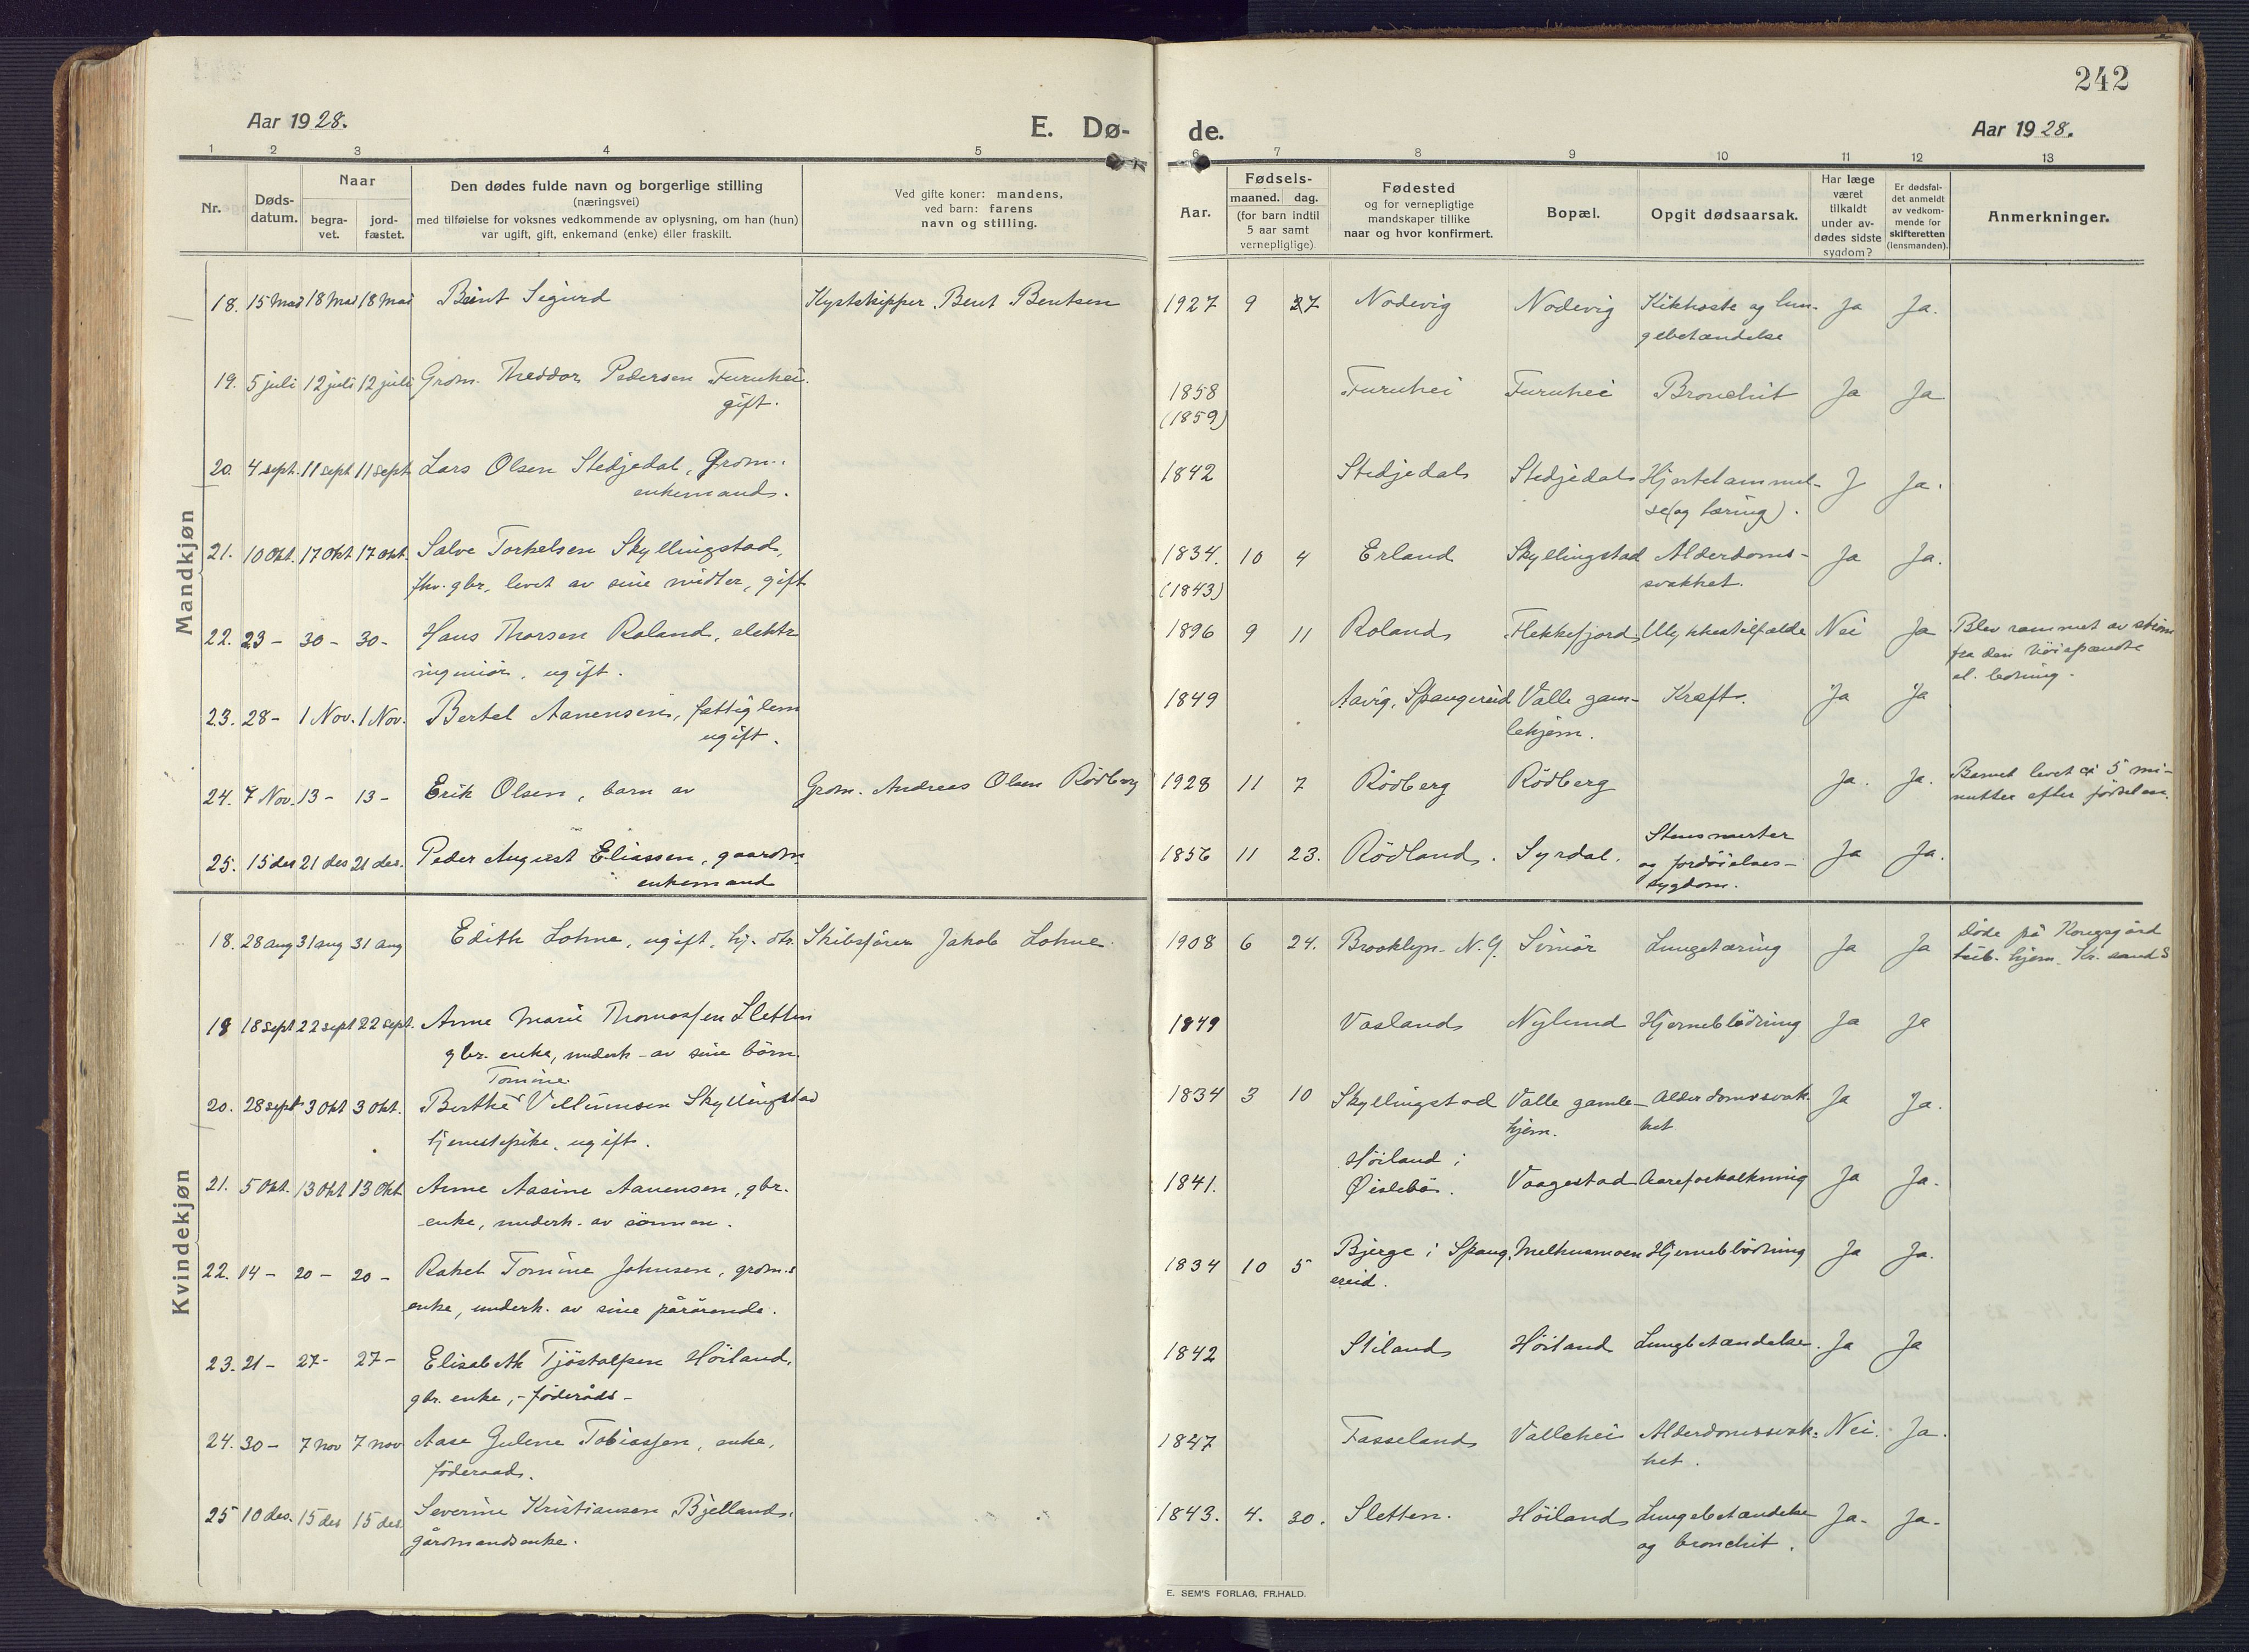 242
Aar 1928.
E. Dø-
de.
Aar 1928.
1 2 3 4 5 6 7 8 9 10 11 12 13
Nr.
Døds-
datum.
Naar
begra-
vet.
jord-
fæstet.
Den dødes fulde navn og borgerlige stilling
(næringsvei)
med tilføielse for voksnes vedkommende av oplysning, om han (hun)
var ugift, gift, enkemand (enke) eller fraskilt.
Ved gifte koner: mandens,
ved barn: farens
navn og stilling.
Aar.
Fødsels-
maaned. dag.
(for barn indtil
5 aar samt
vernepligtige)
Fødested
og for vernepligtige
mandskaper tillike
naar og hvor konfirmert.
Bopæl.
Opgit dødsaarsak.
Har læge
været
tilkaldt
under av-
dødes sidste
sygdom?
Er dødsfal-
det anmeldt
av vedkom-
mende for
skifteretten
(lensmanden).
Anmerkninger.
Mandkjøn
18. 15 mai 18 mai 18 mai Bent Sigurd Kystskipper Bent Bentsen 1927 9 27 Nodevig Nodevig Kikhoste og lun- Ja Ja.
gebetændelse
19. 5 juli 12 juli 12 juli Grdm. Theodor Pedersen Furuhei. 1858 Furuhei Furuhei Bronchit Ja Ja
gift. (1859)
20. 4 sept. 11 sept 11 sept Lars Olsen Stedjedal, Grdm. 1842 Stedjedal Stedjedal Hjertelammel- J Ja.
enkemand. se (og tæring).
21. 10 Okt. 17 Okt 17 Okt. Salve Torkelsen Skyllingstad, 1834. 10 4 Erland Skyllingstad Alderdoms- Ja Ja.
fhv. gbr. levet av sine midler, gift (1843) svakhet.
22. 23 - 30 - 30 - Hans Thorsen Roland, elektr 1896 9 11 Roland Flekkefjord Ulykkestilfælde Nei Ja Blev rammet av strøm
ingeniör, ugift. fra den höispændte
el. ledning.
23. 28 - 1 Nov. 1 Nov. Bertel Aanensen, fattiglem 1849 Aavig, Spangereid Valle gam- Kræft. Ja Ja
ugift. lehjem.
24. 7 Nov. 13 - 13 - Erik Olsen, barn av Grdm. Andreas Olsen Rödberg 1928 11 7 Rödberg Rödberg Ja. Ja. Barnet levet ca 5 mi-
nutter efter födselen.
25. 15 des 21 des 21 des. Peder August Eliassen, gaardm. 1856 11 23. Rödland. Syrdal. Stensmerter Ja Ja.
enkemand og fordöielses-
sygdom.
Kvindekjøn
18. 28 aug 31 aug 31 aug Edith Lohne, ugift, hj. dtr. Skibsförer Jakob Lohne. 1908 6 24. Brooklyn - N.Y. Svinör Lungetæring Ja Ja Döde på Kongsgård
tub. hjem. Kr. sand S
19 18 sept 22 sept 22 sept. Anne Marie Thomassen Sletten 1849 Vasland Nylund Hjerneblödning Ja Ja
gbr. enke, underh - av sine börn.
Tomine
20. 28 sept 3 Okt 3 Okt. Berthe Villumsen Skyllingstad 1834 3 10 Skyllingstad Valle gamle- Alderdomssvak- Ja Ja.
tjenestepike, ugift. hjem. het
21. 5 Okt. 13 Okt 13 Okt Anne Aasine Aanensen, gbr. 1841. Höiland i Vaagestad Aareforkalkning Ja Ja.
-enke, underh. av sönnen. Øislebö.
22. 14 - 20 - 20 - Rakel Tomine Johnsen, grdm.s 1834 10 5 Bjerge i Spang. Melhusmoen Hjerneblödning Ja Ja.
enke, underh. av sine pårörende. ereid.
23. 21 - 27 - 27 - Elisabeth Tjöstolfsen Höiland, 1842 Stiland Höiland Lungbetændelse. Ja Ja
gbr. enke, - föderåds -
24. 30 - 7 nov 7 nov Aase Gulene Tobiassen, enke, 1847 Fasseland Vallehei Alderdomssvak- Nei. Ja.
föderaad. het.
25 10 des. 15 des 15 des Severine Kristiansen Bjelland, 1843. 4. 30. Sletten. Höiland Lungebetændelse Ja. Ja.
gårdmandsenke. og bronchit.
E. SEM'S FORLAG, FR.HALD.